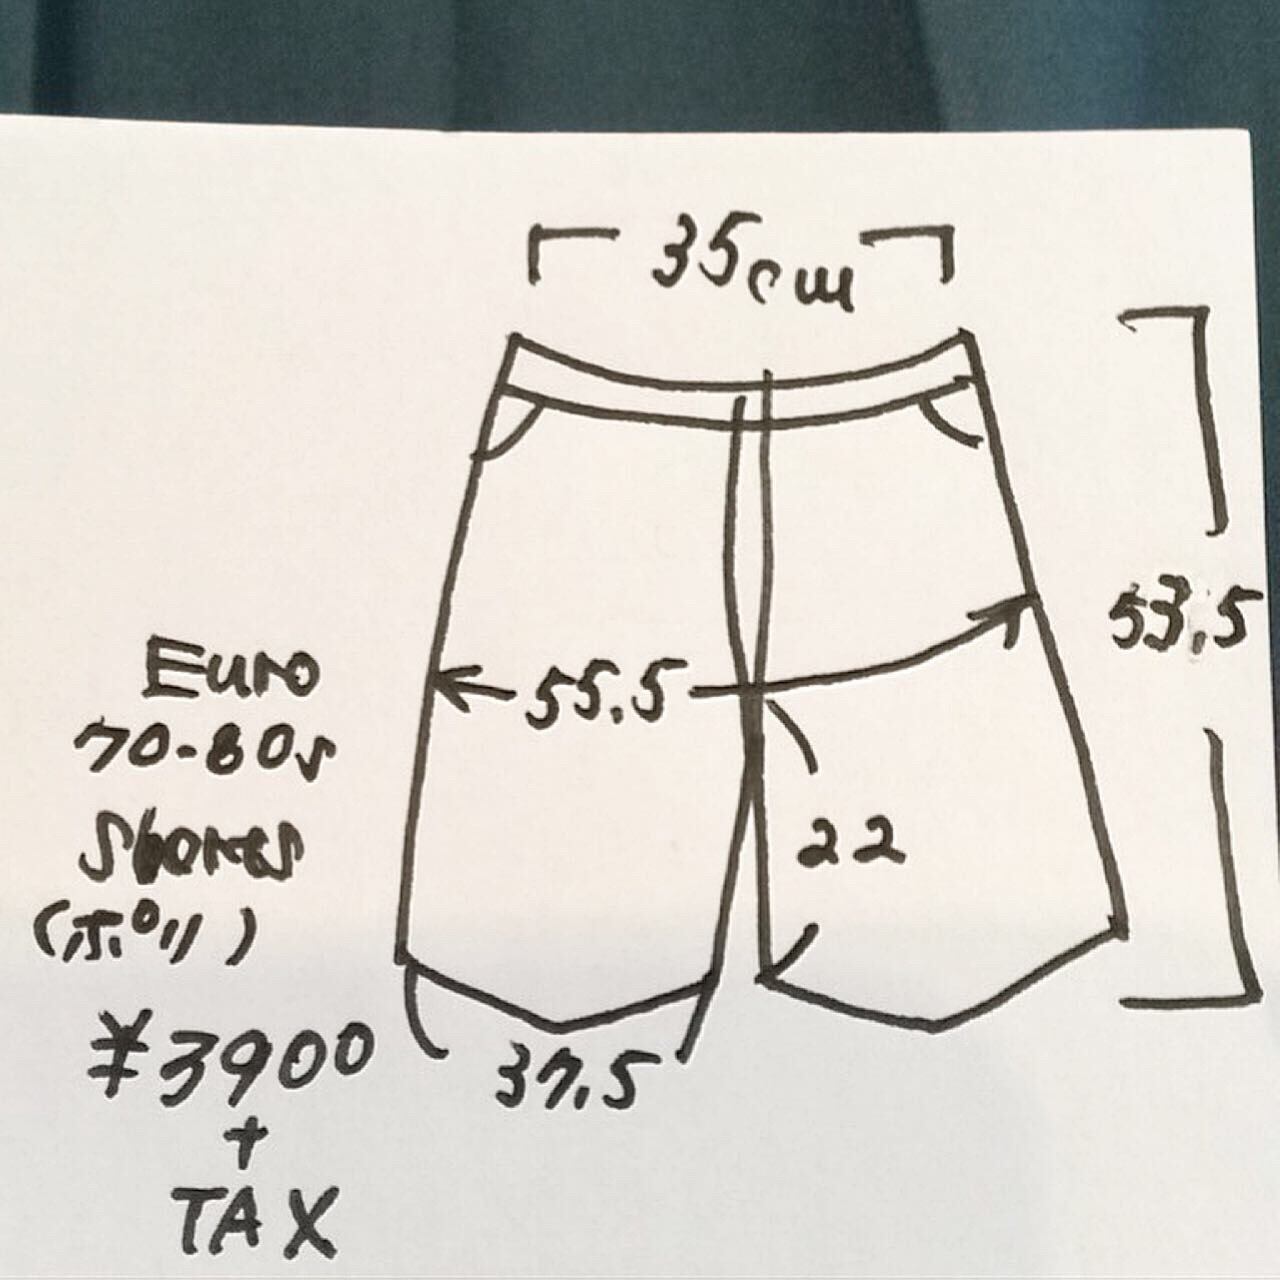 35cm
53.5
55.5
22
37.5
Euro
70-80s
Shorts
(ポリ)
¥3900
+
TAX